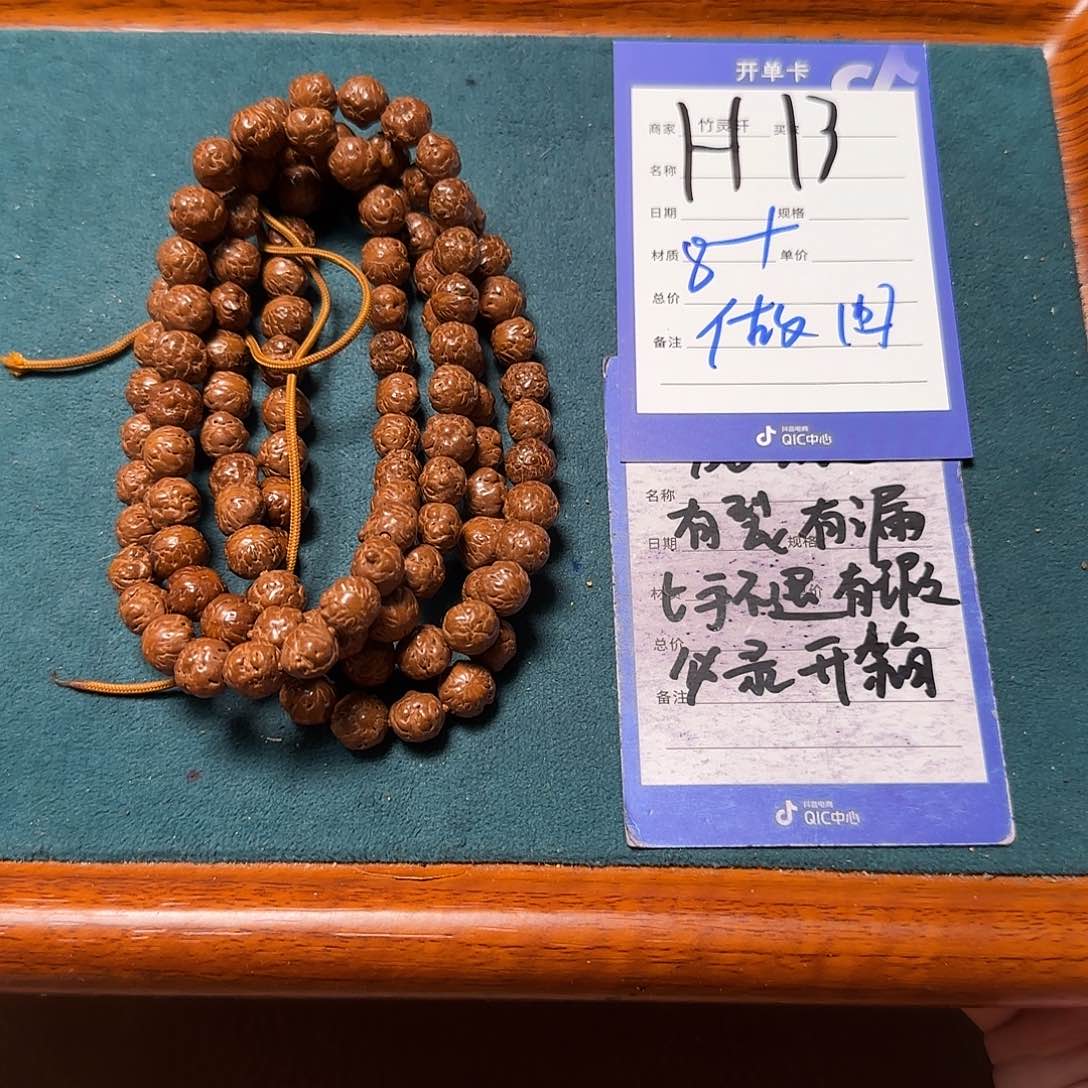 开单卡
H 13
商家 竹灵轩 买家
名称
日期 规格
材质 单价
8+
总价
备注 做旧
抖音电商
QIC中心
名称
有裂有漏
日期 规格
上手不退有瑕
总价
必录开箱
备注
抖音电商
QIC中心